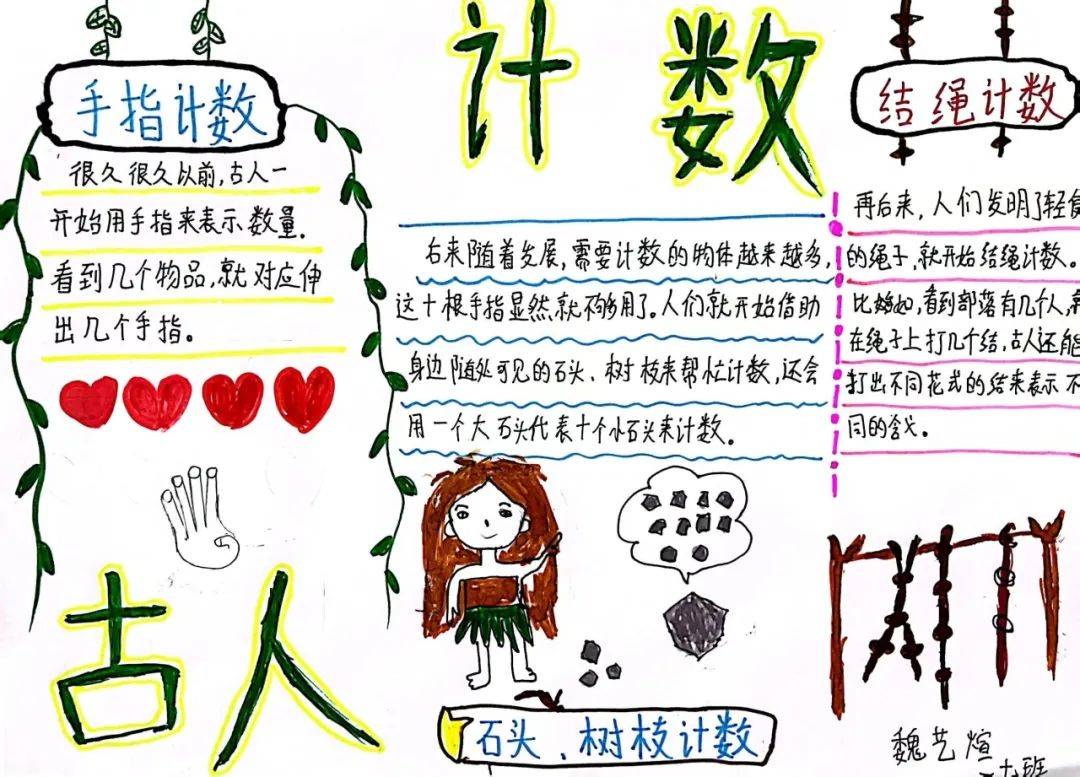 计数
手指计数
很久很久以前,古人一
开始用手指来表示数量.
看到几个物品,就对应伸
出几个手指。
古人
右来随着发展,需要计数的物体越来越多,
这十根手指显然就不够用了。人们就开始借助
身边随处可见的石头、树枝来帮忙计数,还会
用一个大石头代表十个小石头来计数。
石头、树枝计数
结绳计数
再后来,人们发明了轻
的绳子,就开始结绳计数。
比如,看到部落有几个人,
在绳子上打几个结,古人还能
打出不同花式的结来表示不
同的含义。
魏艺煊
九班